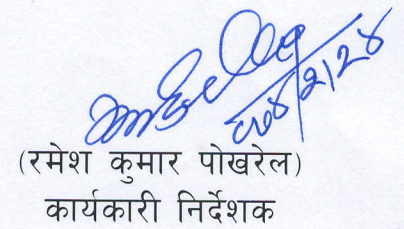 (रमेश कुमार पोखरेल)
कार्यकारी निर्देशक